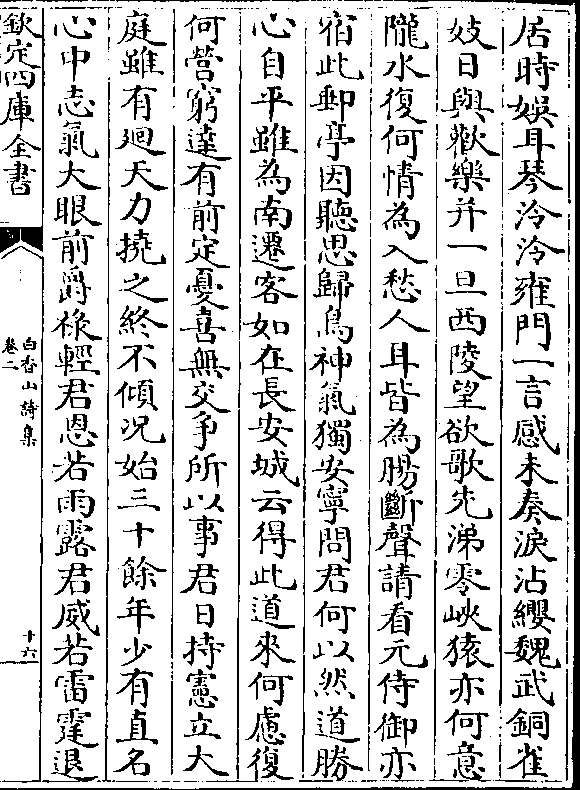 居時娛耳琴泠泠雍門一言感未奏淚沾纓魏武銅雀
妓日與歡樂并一旦西陵望欲歌先涕零峽猿亦何意
隴水復何情為入愁人耳皆為腸斷聲請看元侍御亦
宿此郵亭因聽思歸鳥神氣獨安寧問君何以然道勝
心自平雖為南遷客如在長安城云得此道來何慮復
何營窮達有前定憂喜無交争所以事君日持憲立大
庭雖有廻天力撓之終不傾况始三十餘年少有直名
心中志氣大眼前爵祿輕君恩若雨露君威若雷霆退
欽定四庫全書
白香山詩集
卷二
十六